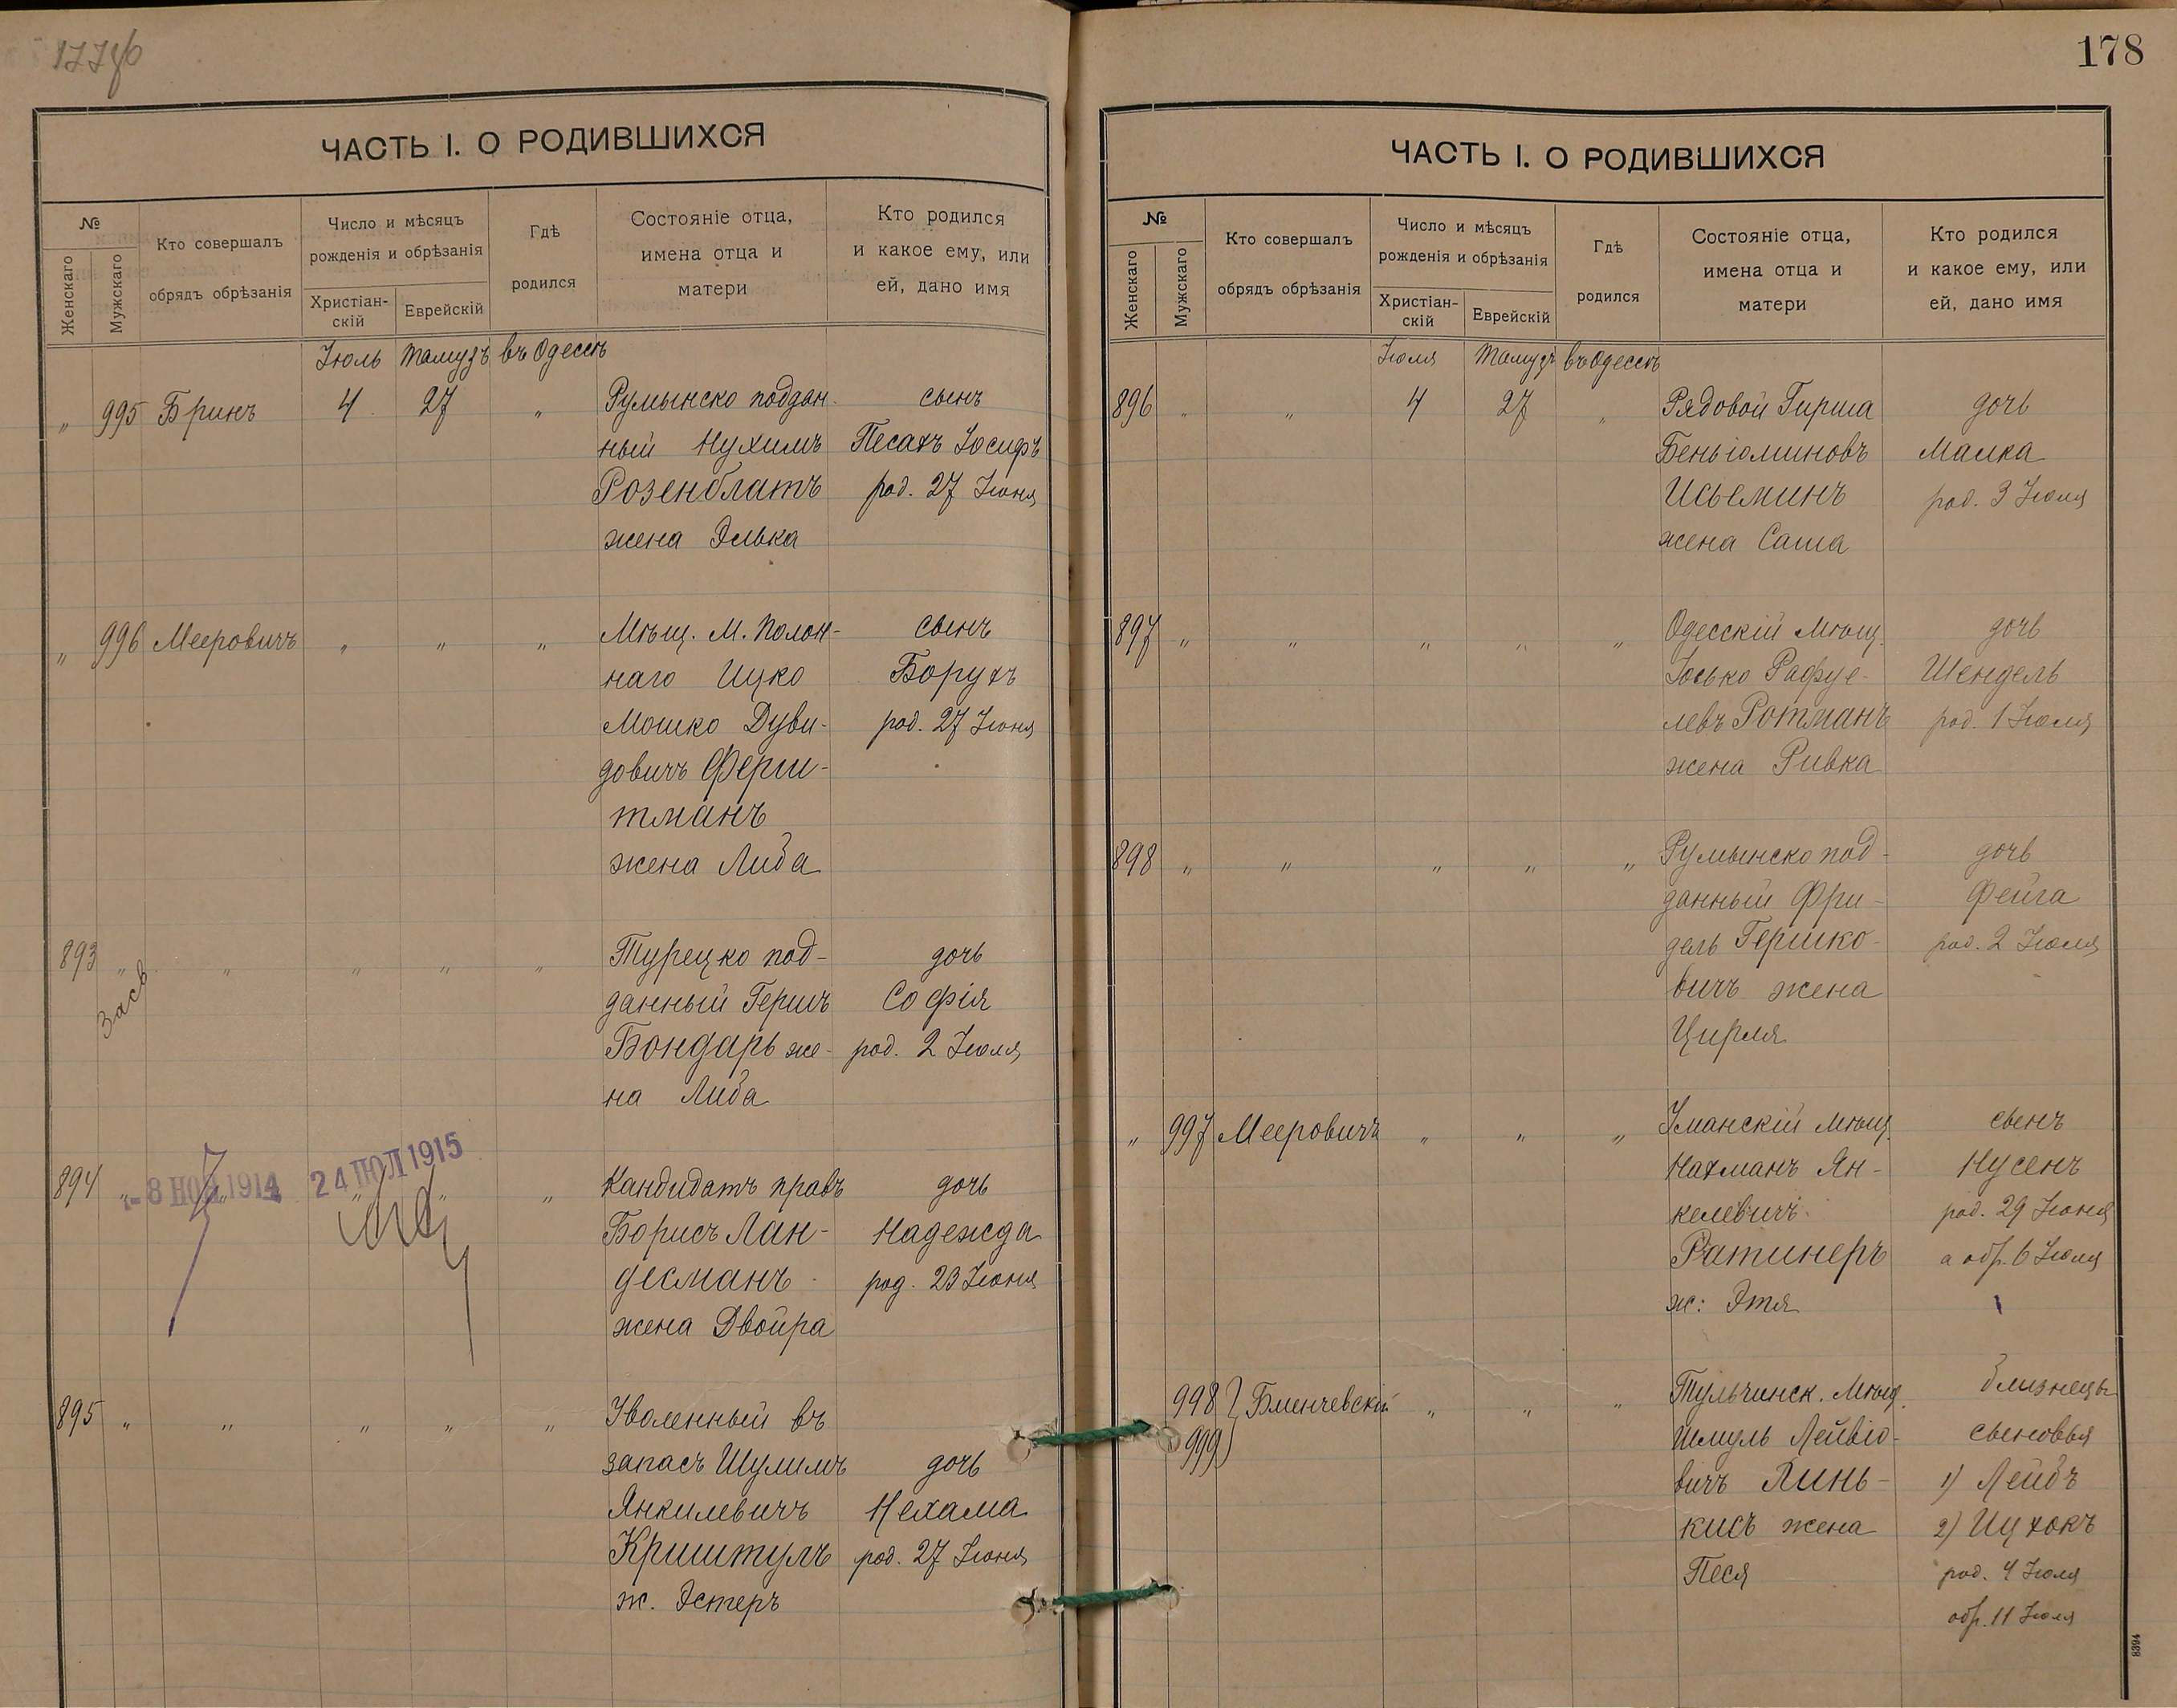 177 об
ЧАСТЬ I. О РОДИВШИХСЯ
№
Женскаго
Мужскаго
Кто совершалъ
обрядъ обрѣзанія
Число и мѣсяцъ
рожденія и обрѣзанія
Христіан-
скій
Еврейскій
Гдѣ
родился
Состояніе отца,
имена отца и
матери
Кто родился
и какое ему, или
ей, дано имя
Іюль Тамузъ въ Одессѣ
" 995 Бринъ 4 27 " Румынско поддан- сынъ
ный Нухимъ Песахъ Іосифъ
Розенблатъ род. 27 Іюня
жена Элька
" 996 Мееровичъ " " " Мѣщ. М. Полон- сынъ
наго Ицко Борухъ
Мошко Дуви- род. 27 Іюня
довичъ Ферш-
тманъ
жена Либа
893 " " " " " Турецко под- дочь
Засв
данный Гершъ Софія
Бондарь же- род. 2 Іюля
на Либа
894 " - 8 НОЯ 1914 24 ІЮЛ 1915 " Кандидатъ правъ дочь
Борисъ Лан- Надежда
десманъ род. 23 Іюня
жена Двойра
895 " " " " " Уволенный въ
запасъ Шулимъ дочь
Янкилевичъ Нехама
Криштулъ род. 27 Іюня
ж. Эстеръ
178
ЧАСТЬ I. О РОДИВШИХСЯ
№
Женскаго
Мужскаго
Кто совершалъ
обрядъ обрѣзанія
Число и мѣсяцъ
рожденія и обрѣзанія
Христіан-
скій
Еврейскій
Гдѣ
родился
Состояніе отца,
имена отца и
матери
Кто родился
и какое ему, или
ей, дано имя
Іюля Тамузъ въ Одессѣ
896 " " 4 27 " Рядовой Гирша дочь
Беньіоминовъ Малка
Исьеминъ род. 3 Іюля
жена Саша
897 " " " " " Одесскій мѣщ. дочь
Іосько Рафуе- Шендель
левъ Ротманъ род. 1 Іюля
жена Ривка
898 " " " " " Румынско под- дочь
данный Фри- Фейга
дель Гершко- род. 2 Іюля
вичъ жена
Цирля
" 997 Мееровичъ " " " Уманскій мѣщ. сынъ
Нахманъ Ян- Нусенъ
келевичъ род. 29 Іюня
Ратинеръ а обр. 6 Іюля
ж: Этя
998 Бменчевскій " " " Тульчинск. мѣщ. близнецы
999 Шмуль Лейвіо- сыновья
вичъ Линь- 1) Лейбъ
кисъ жена 2) Ицхокъ
Песя род. 4 Іюля
обр. 11 Іюля
8394